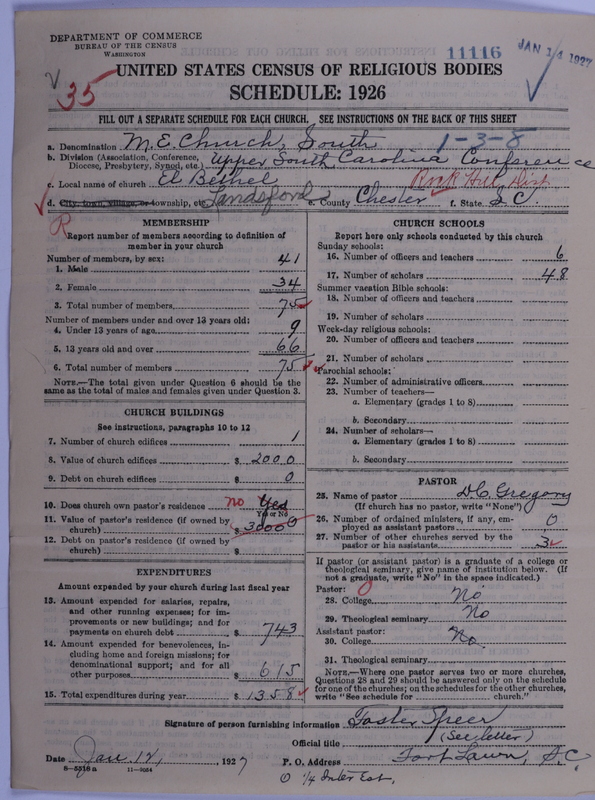 DEPARTMENT OF COMMERCE
BUREAU OF THE CENSUS
WASHINGTON
11116
JAN 14 1927
35
UNITED STATES CENSUS OF RELIGIOUS BODIES
SCHEDULE: 1926
FILL OUT A SEPARATE SCHEDULE FOR EACH CHURCH. SEE INSTRUCTIONS ON THE BACK OF THIS SHEET
1-3-8
a. Denomination M. E. Church, South
b. Division (Association, Conference, Diocese, Presbytery, Synod, etc.) Upper South Carolina Conference
c. Local name of church El Bethel Rock Hill Dist
d. City, town, village, or township, etc. Landsford e. County Chester f. State S. C.
R
MEMBERSHIP
Report number of members according to definition of
member in your church
Number of members, by sex:
1. Male 41
2. Female 34
3. Total number of members 75
Number of members under and over 13 years old:
4. Under 13 years of age 9
5. 13 years old and over 66
6. Total number of members 75
NOTE.—The total given under Question 6 should be the
same as the total of males and females given under Question 3.
CHURCH BUILDINGS
See instructions, paragraphs 10 to 12
7. Number of church edifices 1
8. Value of church edifices $ 2000
9. Debt on church edifices $ 0
10. Does church own pastor's residence no Yes
Yes or No
11. Value of pastor's residence (if owned by
church) $ 3000
12. Debt on pastor's residence (if owned by
church) $
EXPENDITURES
Amount expended by your church during last fiscal year
13. Amount expended for salaries, repairs,
and other running expenses; for im-
provements or new buildings; and for
payments on church debt $ 743
14. Amount expended for benevolences, in-
cluding home and foreign missions; for
denominational support; and for all
other purposes $ 615
15. Total expenditures during year $ 1358
CHURCH SCHOOLS
Report here only schools conducted by this church
Sunday schools:
16. Number of officers and teachers 6
17. Number of scholars 48
Summer vacation Bible schools:
18. Number of officers and teachers
19. Number of scholars
Week-day religious schools:
20. Number of officers and teachers
21. Number of scholars
Parochial schools:
22. Number of administrative officers
23. Number of teachers—
a. Elementary (grades 1 to 8)
b. Secondary
24. Number of scholars—
a. Elementary (grades 1 to 8)
b. Secondary
PASTOR
25. Name of pastor D. C. Gregory
(If church has no pastor, write "None")
26. Number of ordained ministers, if any, em-
ployed as assistant pastors 0
27. Number of other churches served by the
pastor or his assistants 3
If pastor (or assistant pastor) is a graduate of a college or
theological seminary, give name of institution below. (If
not a graduate, write "No" in the space indicated.)
Pastor: 0
28. College No
29. Theological seminary No
Assistant pastor:
30. College No
31. Theological seminary
NOTE.—Where one pastor serves two or more churches,
Questions 28 and 29 should be answered only on the schedule
for one of the churches; on the schedules for the other churches,
write "See schedule for church."
Signature of person furnishing information Foster Speer
Official title (See letter)
Date Jan 12, 1927 P. O. Address Fort Lawn, S. C.
8-5518a 11-9054
0 1/4 Inter Est.